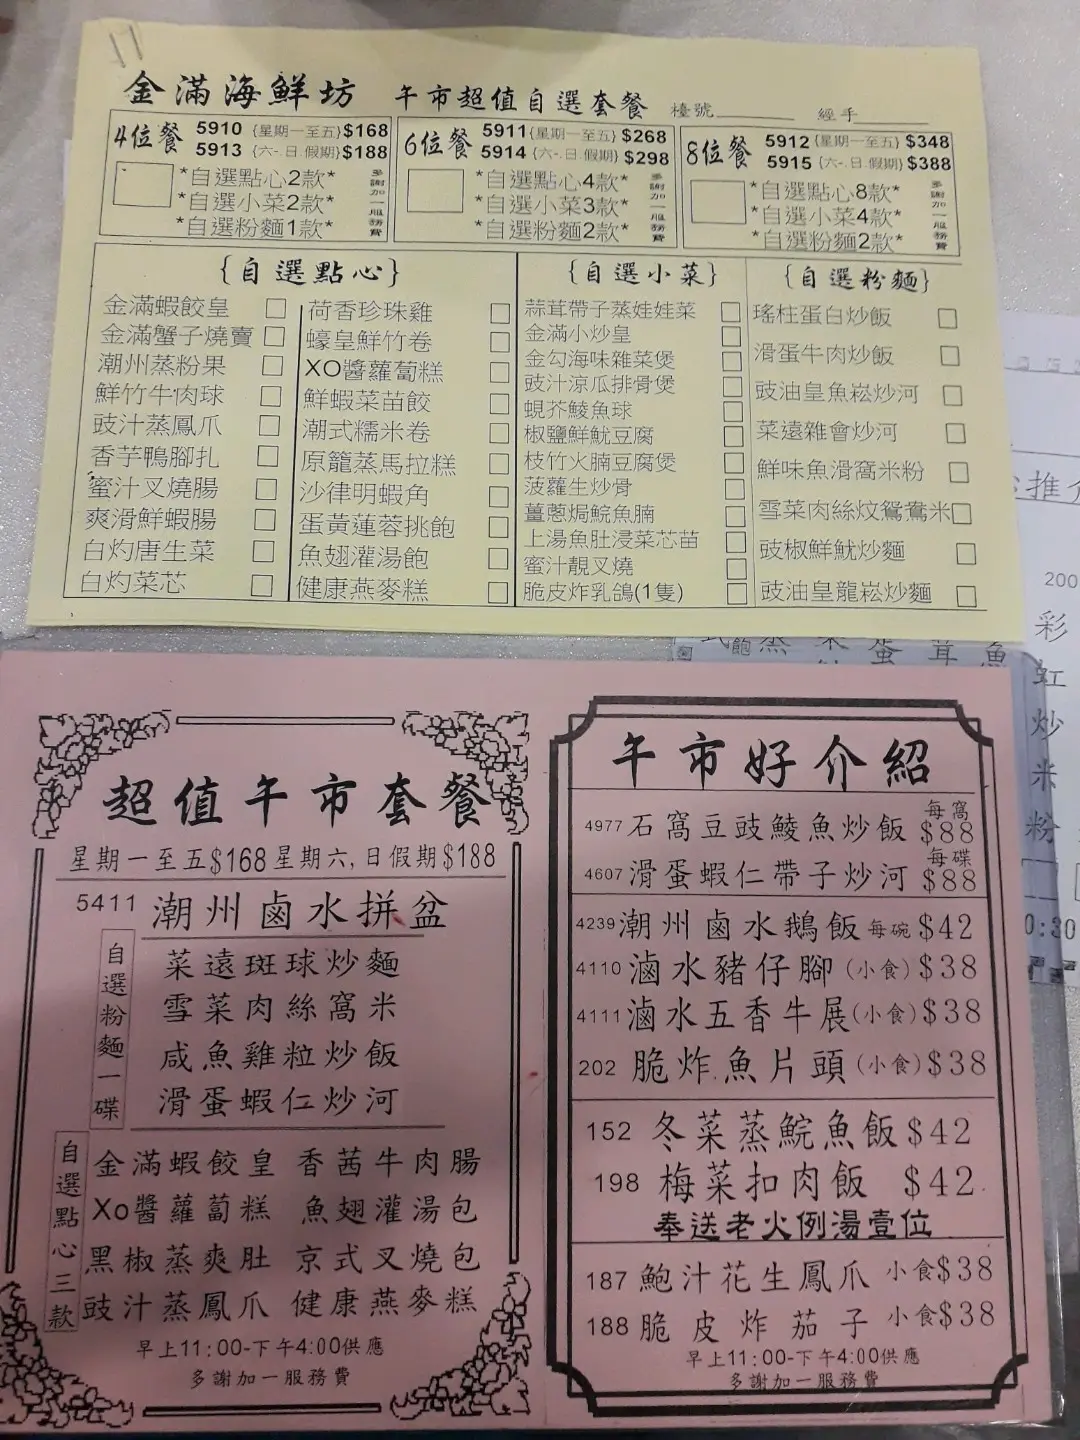 金滿海鮮坊 午市超值自選套餐 檯號 經手
4位餐 5910 {星期一至五}$168
5913 {六-.日.假期}$188
*自選點心2款*
*自選小菜2款*
*自選粉麵1款*
多謝加一服務費
6位餐 5911{星期一至五}$268
5914 {六-.日.假期}$298
*自選點心4款*
*自選小菜3款*
*自選粉麵2款*
多謝加一服務費
8位餐 5912{星期一至五}$348
5915 {六-.日.假期}$388
*自選點心8款*
*自選小菜4款*
*自選粉麵2款*
多謝加一服務費
{自選點心}
金滿蝦餃皇
金滿蟹子燒賣
潮州蒸粉果
鮮竹牛肉球
豉汁蒸鳳爪
香芋鴨腳扎
蜜汁叉燒腸
爽滑鮮蝦腸
白灼唐生菜
白灼菜芯
荷香珍珠雞
蠔皇鮮竹卷
XO醬蘿蔔糕
鮮蝦菜苗餃
潮式糯米卷
原籠蒸馬拉糕
沙律明蝦角
蛋黃蓮蓉挑飽
魚翅灌湯飽
健康燕麥糕
{自選小菜}
蒜茸帶子蒸娃娃菜
金滿小炒皇
金勾海味雜菜煲
豉汁涼瓜排骨煲
蜆芥鯪魚球
椒鹽鮮魷豆腐
枝竹火腩豆腐煲
菠蘿生炒骨
薑蔥焗鯇魚腩
上湯魚肚浸菜芯苗
蜜汁靚叉燒
脆皮炸乳鴿(1隻)
{自選粉麵}
瑤柱蛋白炒飯
滑蛋牛肉炒飯
豉油皇魚崧炒河
菜遠雜會炒河
鮮味魚滑窩米粉
雪菜肉絲炆鴛鴦米
豉椒鮮魷炒麵
豉油皇龍崧炒麵
推介
200
彩虹炒米粉
0:30
超值午市套餐
星期一至五$168星期六,日假期$188
5411 潮州鹵水拼盆
自選粉麵一碟
菜遠斑球炒麵
雪菜肉絲窩米
咸魚雞粒炒飯
滑蛋蝦仁炒河
自選點心三款
金滿蝦餃皇 香茜牛肉腸
Xo醬蘿蔔糕 魚翅灌湯包
黑椒蒸爽肚 京式叉燒包
豉汁蒸鳳爪 健康燕麥糕
早上11:00-下午4:00供應
多謝加一服務費
午市好介紹
4977 石窩豆豉鯪魚炒飯 每窩$88
4607 滑蛋蝦仁帶子炒河 每碟$88
4239 潮州鹵水鵝飯 每碗 $42
4110 滷水豬仔腳 (小食) $38
4111 滷水五香牛展 (小食) $38
202 脆炸魚片頭 (小食) $38
152 冬菜蒸鯇魚飯 $42
198 梅菜扣肉飯 $42
奉送老火例湯壹位
187 鮑汁花生鳳爪 小食$38
188 脆皮炸茄子 小食$38
早上11:00-下午4:00供應
多謝加一服務費